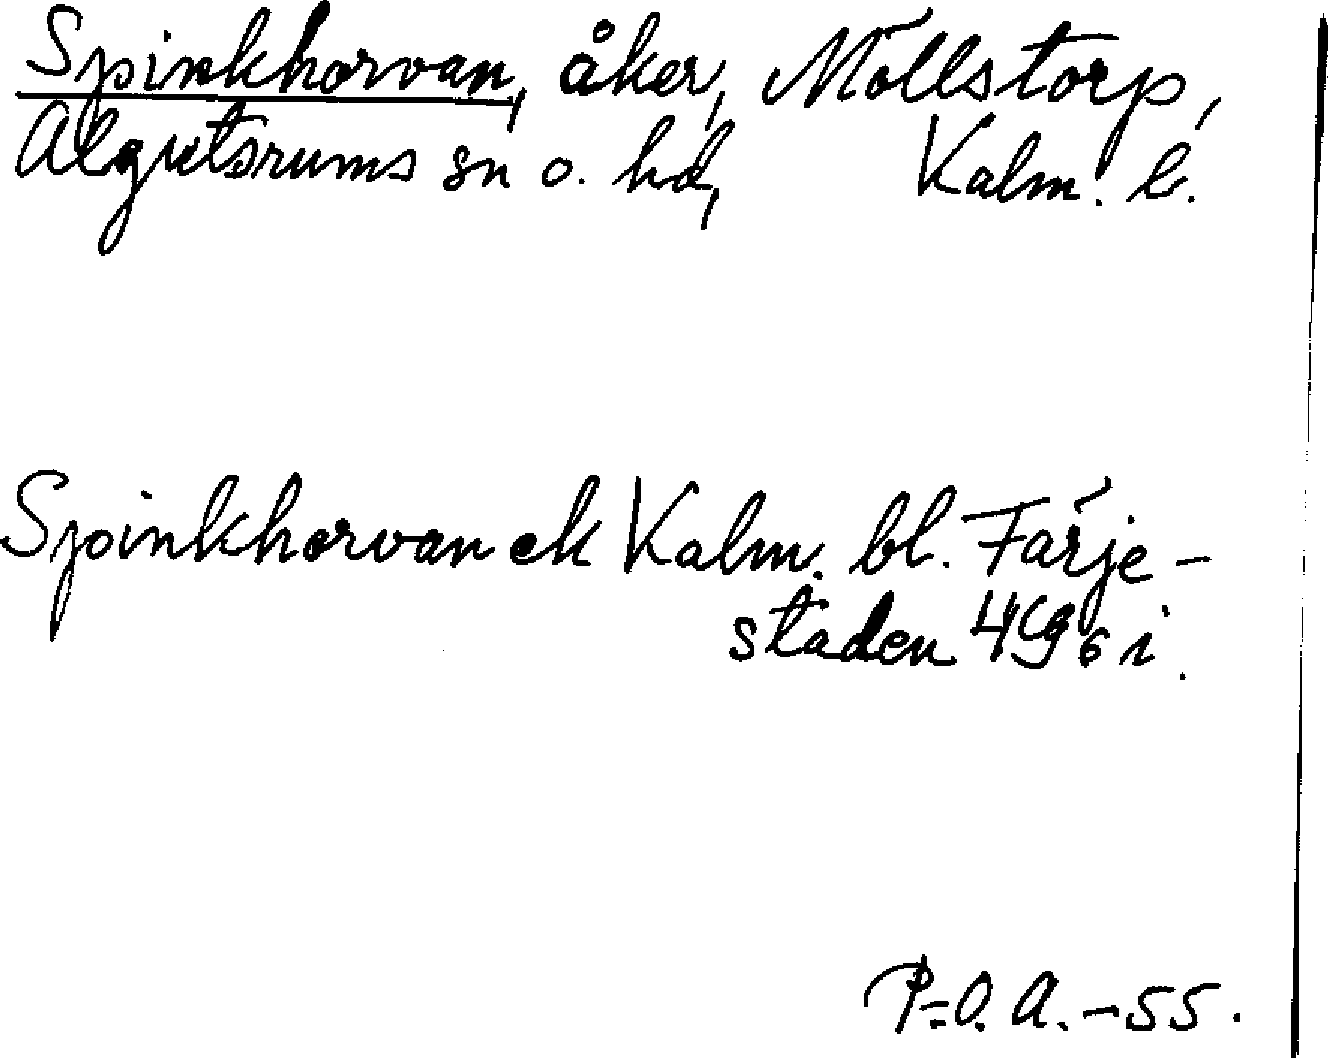 Spinkhorvan, åker, Möllstorp,
Algutsrums sn o. hd, Kalm. l.
Spinkhorvan ek Kalm. bl. Färje-
staden 4G 6 i.
P.-O. A. -55.